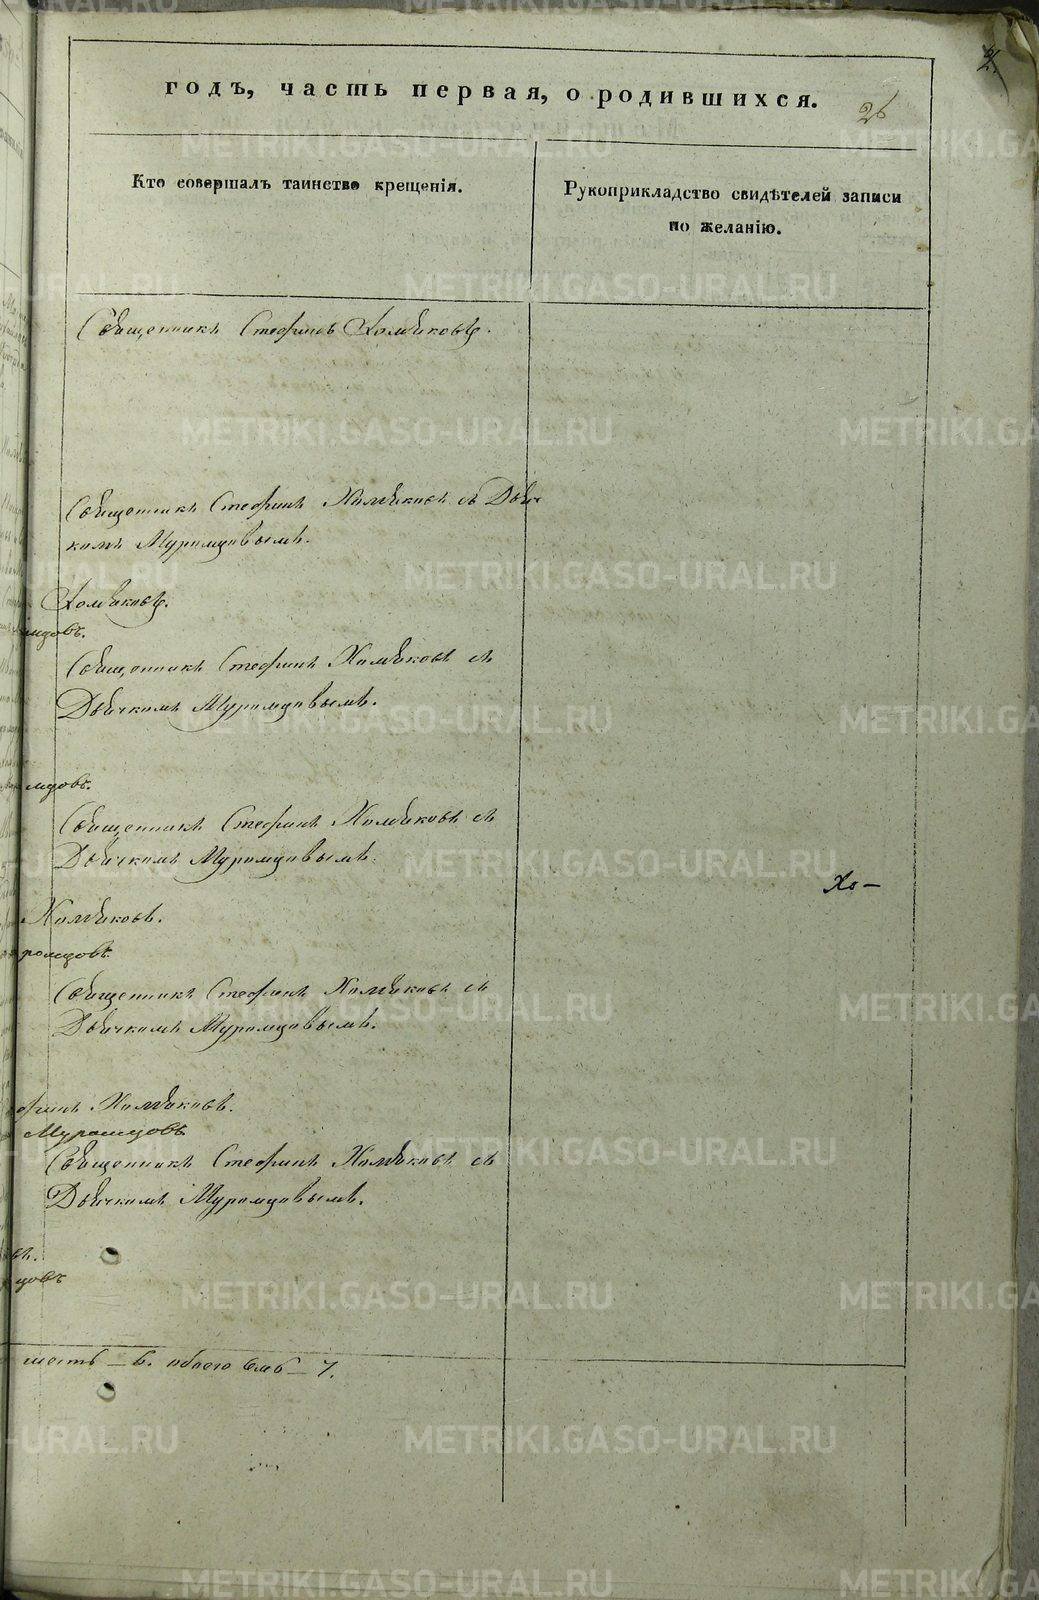 годъ, часть первая, о родившихся.
26
Кто совершалъ таинство крещенія.
Рукоприкладство свидѣтелей записи
по желанію.
Священникъ Стефанъ Хомяковъ.
Священникъ Стефанъ Хомяковъ съ Дьяч-
комъ Муромцовымъ.
Хомяковъ.
мцовъ.
Священникъ Стефанъ Хомяковъ съ
Дьячкомъ Муромцовымъ.
мцовъ.
Священникъ Стефанъ Хомяковъ съ
Дьячкомъ Муромцовымъ.
Хо–
Хомяковъ.
ромцовъ.
Священникъ Стефанъ Хомяковъ съ
Дьячкомъ Муромцовымъ.
фанъ Хомяковъ.
Муромцовъ
Священникъ Стефанъ Хомяковъ съ
Дьячкомъ Муромцовымъ.
въ.
цовъ
шесть – 6. обоего семь – 7.
METRIKI.GASO-URAL.RU